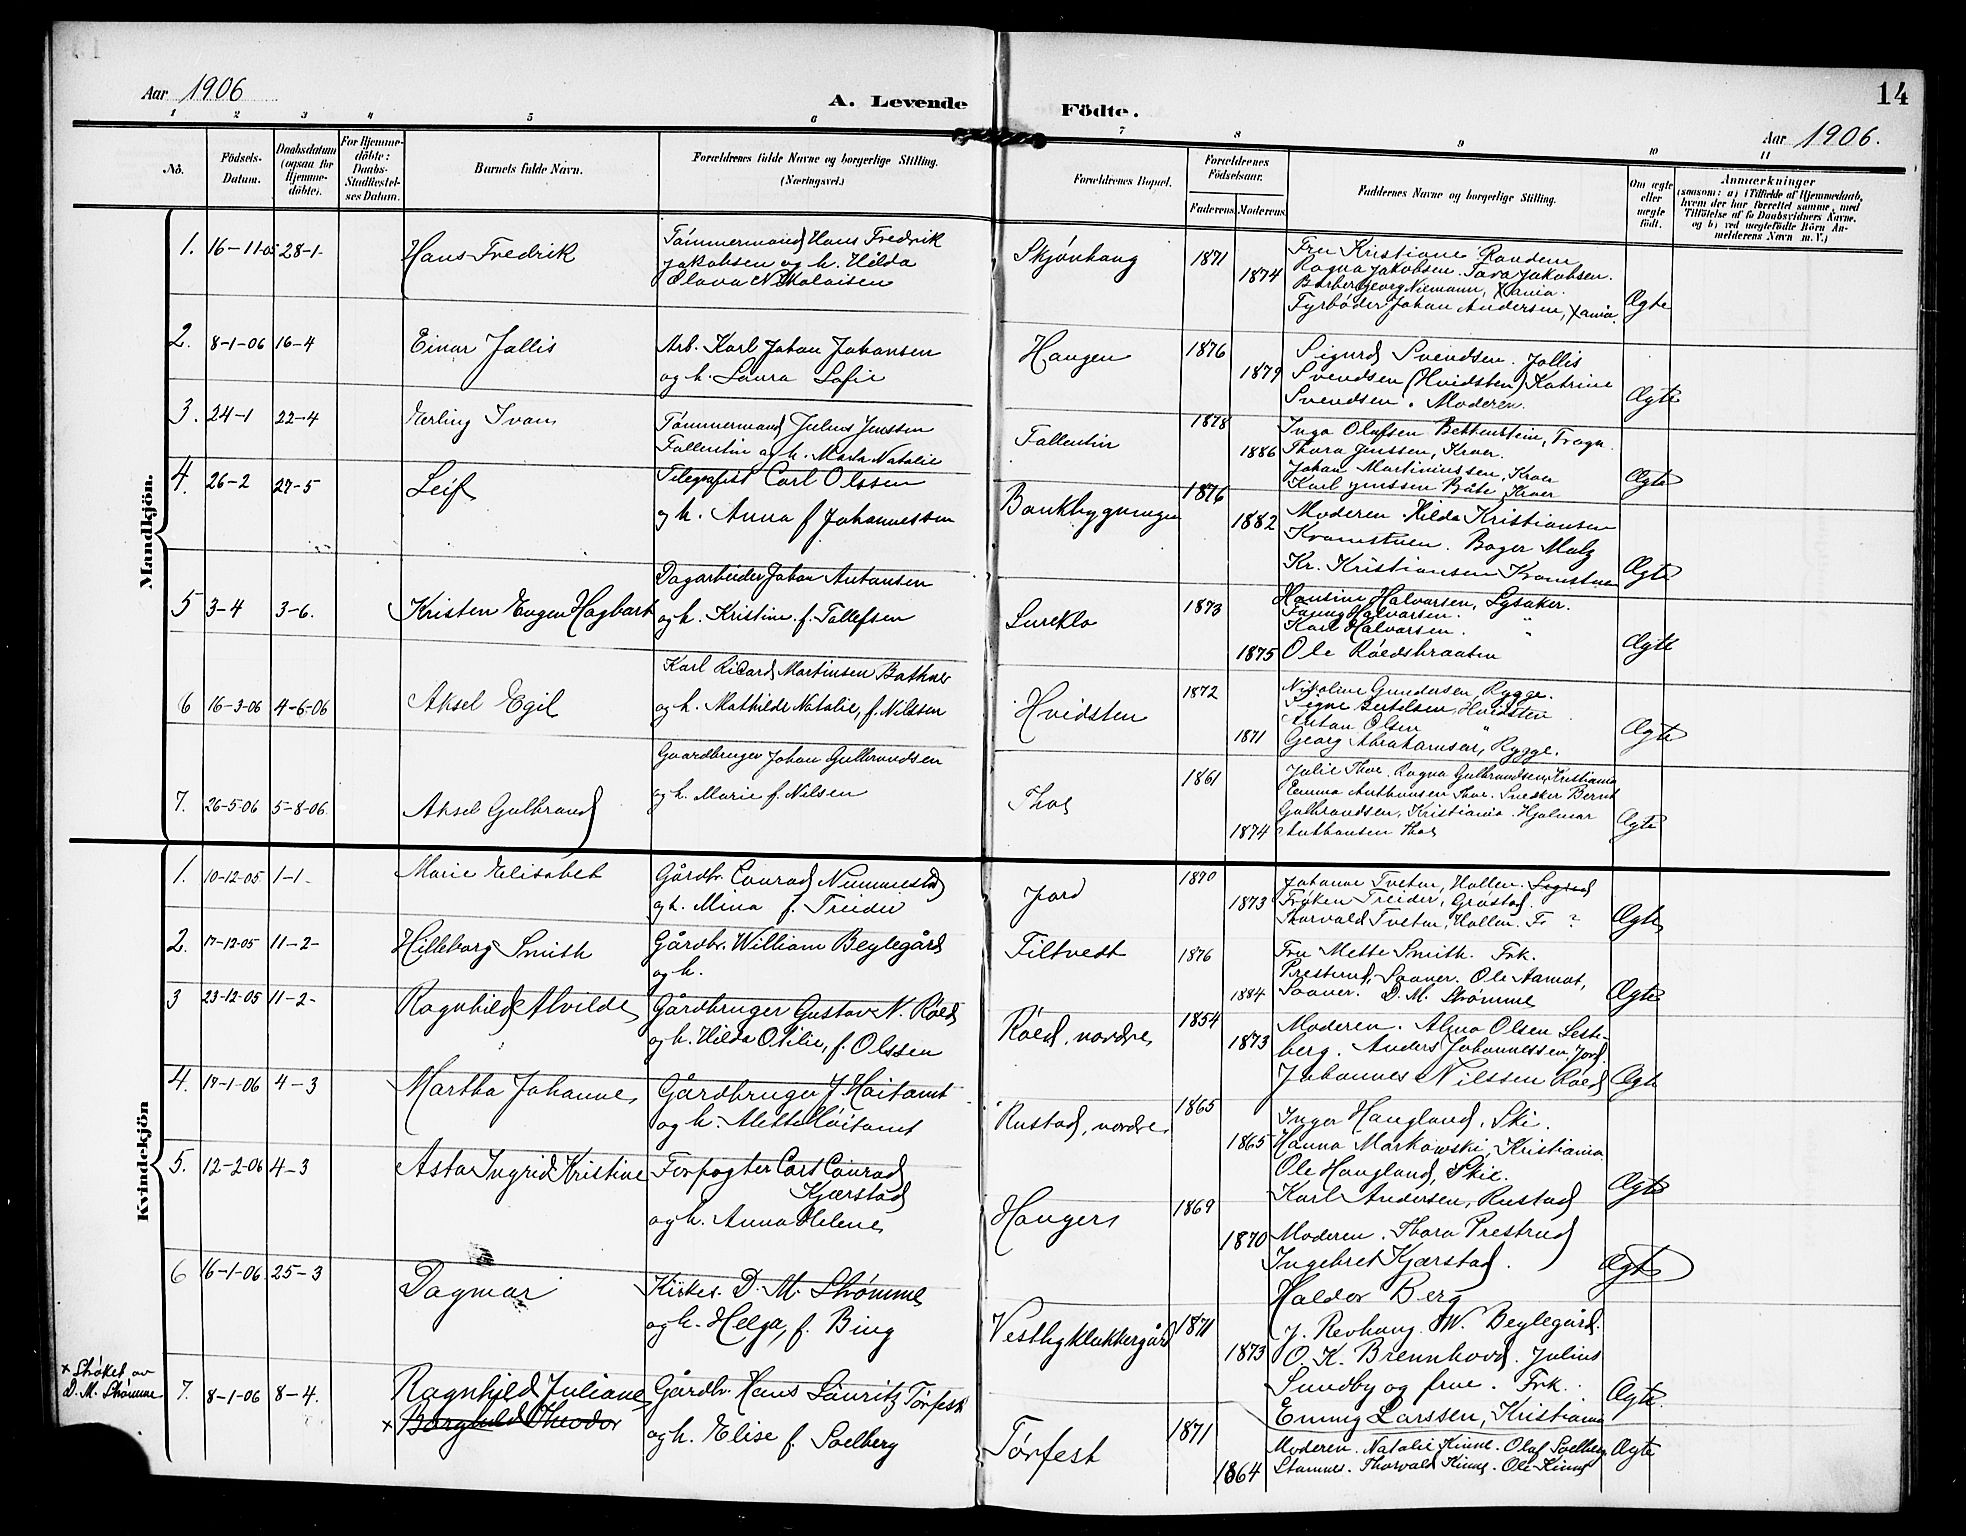 Aar 1906
A. Levende
Födte.
14
Aar 1906.
1 2 3 4 5 6 7 8 9 10 11
No.
Födsels-Datum.
Daabsdatum (ogsaa for Hjemme-döbte).
For Hjemme-döbte: Daabs-Stadfæstelses Datum.
Barnets fulde Navn.
Forældrenes fulde Navne og borgerlige Stilling. (Næringsvei.)
Forældrenes Bopæl.
Forældrenes Födselsaar.
Faderens. Moderens.
Faddernes Navne og borgerlige Stilling.
Om ægte eller uægte födt.
Anmærkninger
(saasom: a) i Tilfælde af Hjemmedaab, hvem der har forrettet samme, med Tilföielse af to Daabsvidners Navne, og b) ved uægtefödte Börn Anmelderens Navn m. V.)
Mandkjön.
1. 16-11-05 28-1- Hans Fredrik
Tømmermand Hans Fredrik
Jakobsen og h. Hilda
Olava Nikolaisen
Skjønhaug 1871 1874
Fru Kristiane Randem
Ragna Jakobsen. Sara Jakobsen.
Barber Georg Niemann, Xania.
Fyrbøder Johan Andersen, Xania.
Ægte
2. 8-1-06 16-4 Einar Jallis
Arb. Karl Johan Johansen
og h. Laura Sofie
Haugen 1876 1879
Sigurd Svendsen. Jallis
Svendsen (Hvidsten) Katrine
Svendsen. Moderen.
Ægte
3. 24-1 22-4 Erling Ivan
Tømmermand Julius Jenssen
Fallentin og h. Marta Natalie
Fallentin 1878 1886
Inga Olafsen Bekkenstein, Frogn.
Thora Jenssen, Kroer.
Johan Martiniussen, Kroer
Karl Jenssen Båte Kroer
Ægte
4. 26-2 27-5 Leif
Telegrafist Carl Olssen
og h. Anna f Johannessen
Bankbygningen 1876 1882
Moderen Hilda Kristiansen
Kramstuen. Bager Malz
Kr. Kristiansen Kramstuen
Ægte
5 3-4 3-6. Kristen Eugen Hagbart
Dagarbeider Johan Antonsen
og h. Kristine f. Tallefsen
Lurekla 1873 1875
Hansine Halvorsen, Lysaker.
Fanny Halvorsen. "
Karl Halvorsen. "
Ole Røedsbraaten
Ægte
6 16-3-06 4-6-06 Aksel Egil
Karl Ricard Martinsen Bakke
og h. Mathilde Natalie, f. Nilssen
Hvidsten 1872 1871
Nikoline Gundersen, Rygge.
Signe Bertelsen, Hvidsten
Anton Olsen "
Georg Abrahamsen, Rygge.
Ægte
7. 26-5-06 5-8-06 Aksel Gulbrand
Gaardbruger Johan Gulbrandsen
og h. Marie f. Nilsen
Thor 1861 1874
Julie Thor. Ragna Gulbrandsen, Kristiania
Emma Anthonsen Thor. Snedker Bernt
Gulbrandsen, Kristiania. Hjalmar
Anthonsen Thor
Ægte
Kvindekjön
1. 10-12-05 1-1- Marie Elisabet
Gårdbr. Conrad Nummestad
og h. Mina f. Treider
Jord 1870 1873
Johanne Tveter, Hallen. Sigrid
Frøken Treider, Grøstad.
Thorvald Tveter, Hallen. Fr ?
Ægte
2. 17-12-05 11-2- Hilleborg Smith
Gårdbr. William Beylegård
og h.
Filtvedt 1876 1884
Fru Mette Smith. Frk.
Presterud, Saaner. Ole Aamot,
Saaner. D. M. Strømme
Ægte
3 23-12-05 11-2- Ragnhild Alvilde
Gårdbruger Gustav N. Røed
og h. Hilda Otilie, f. Olssen
Røed, nordre 1854 1873
Moderen. Alma Olsen Seste-
berg. Anders Johannessen, Jord.
Johannes Nilssen Røed
Ægte
4. 17-1-06 4-3 Martha Johanne
Gårdbruger J. Høitomt
og h. Mette Høitomt
Rustad, nordre 1865 1865
Inger Haugland, Ski.
Hanna Markowski, Kristiania
Ole Haugland, Ski.
Karl Andersen, Rustad
Ægte
5. 12-2-06 4-3 Asta Ingrid Kristine
Forpagter Carl Conrad
Kjærstad
og h. Anna Helene
Haugen 1869 1870
Moderen. Thora Prestrud
Ingebret Kjærstad.
Haldor Berg
Ægte
6 16-1-06 25-3 Dagmar
Kirkes. D. M. Strømme
og h. Helga, f. Bing
Vestbyklokkergård 1871 1873
J. Revhaug. W. Beylegård.
O. K. Brennhovd. Julius
Sundby og frue. Frk.
Emmy Larssen, Kristiania
Ægte
x Strøket av
D. M. Strømme
7. 8-1-06 8-4. Ragnhild Juliane
x Borghild Theodor
Gårdbr. Hans Lauritz Tørfest
og h. Elise f. Solberg
Tørfest 1871 1864
Moderen. Natalie Kinne. Olaf Solberg
Stamnes. Thorvald Kinne. Ole Kinne
Ægte